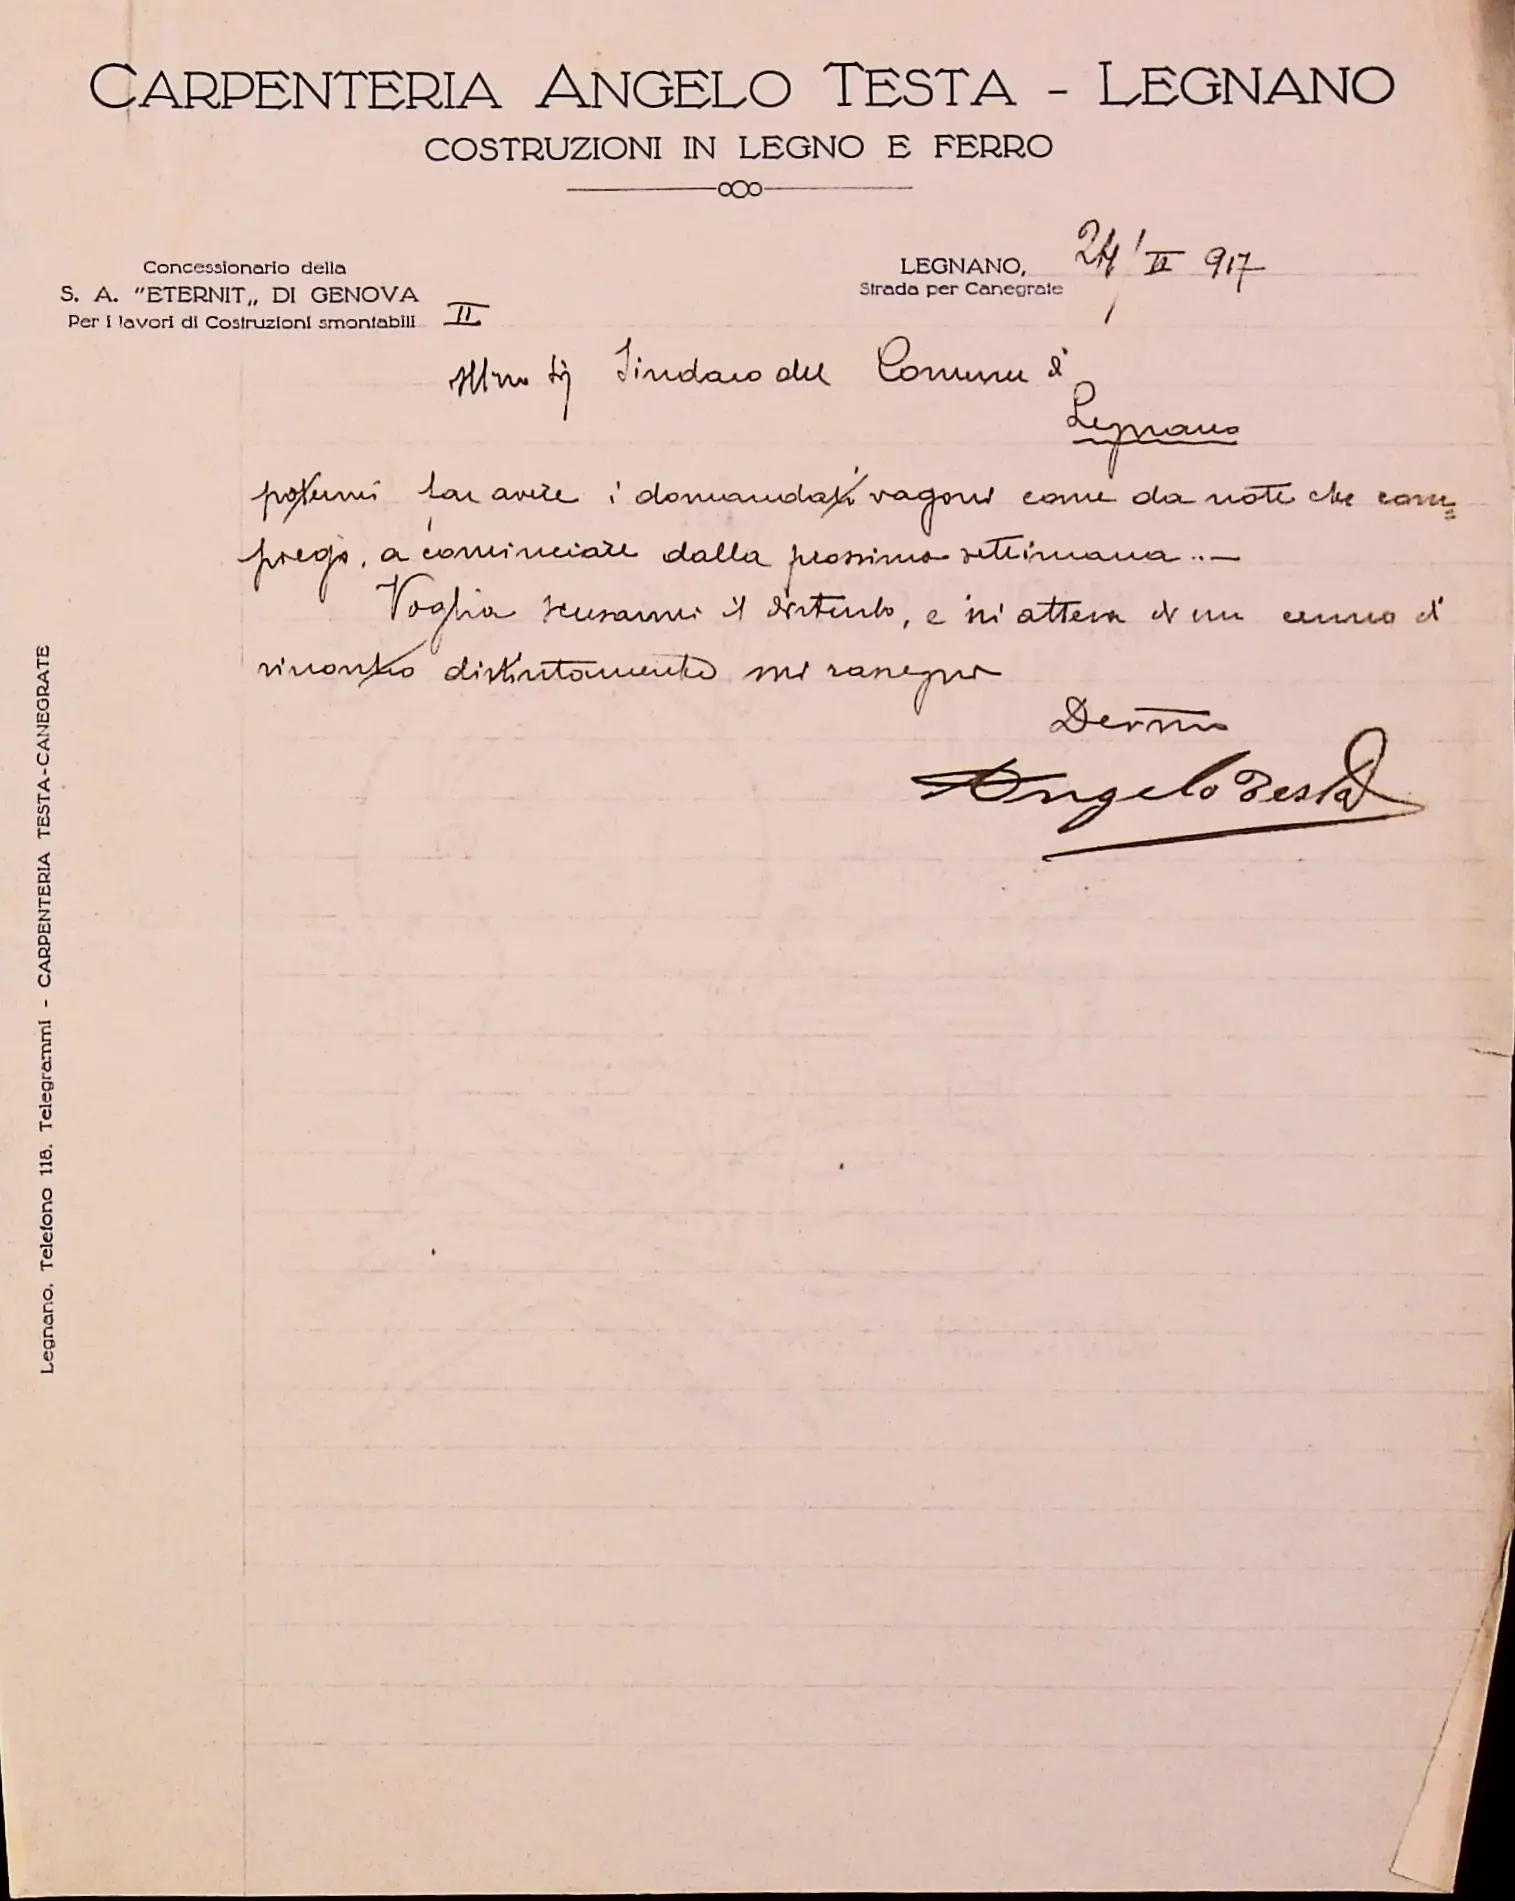 CARPENTERIA ANGELO TESTA - LEGNANO
COSTRUZIONI IN LEGNO E FERRO
Concessionario della
S. A. "ETERNIT„ DI GENOVA
Per i lavori di Costruzioni smontabili
II
LEGNANO, 24/II 917
Strada per Canegrate
Illmo Sig Sindaco del Comune di
Legnano
potermi far avere i domandati vagoni come da note che com=
piego, a cominciare dalla prossima settimana..—
Voglia scusarmi il disturbo, e in attesa di un cenno di
riscontro distintamente mi rassegno
Devmo
Angelo Testa
Legnano. Telefono 118. Telegrammi - CARPENTERIA TESTA-CANEGRATE